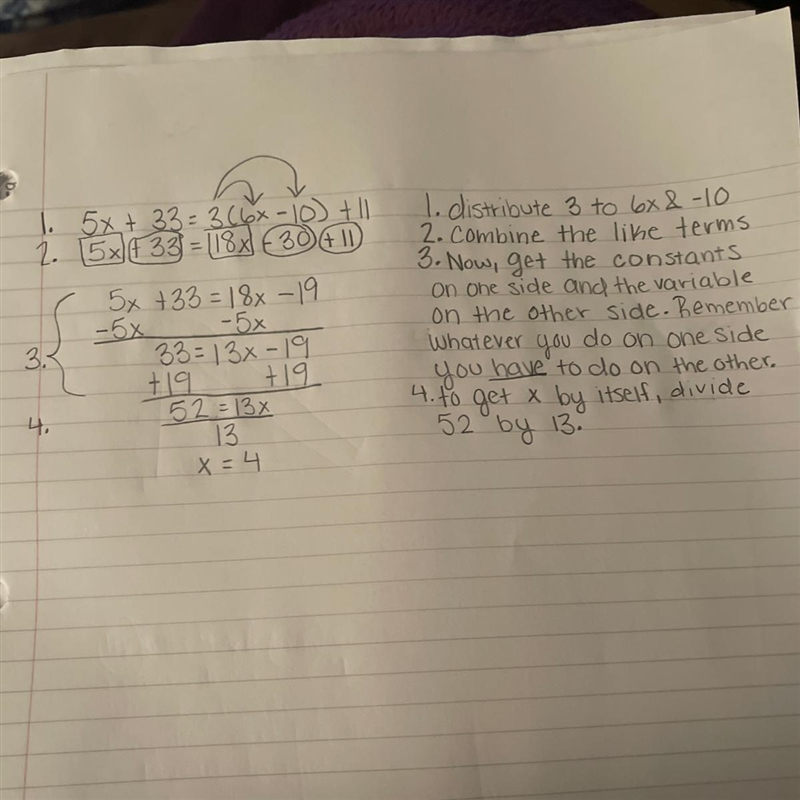 1. 5x + 33 = 3(6x - 10) + 11
2. 5x + 33 = 18x - 30 + 11
5x + 33 = 18x - 19
-5x -5x
3. 33 = 13x - 19
+19 +19
52 = 13x
4. 13
x = 4
1. distribute 3 to 6x & -10
2. Combine the like terms
3. Now, get the constants
on one side and the variable
on the other side. Remember
whatever you do on one side
you have to do on the other.
4. to get x by itself, divide
52 by 13.